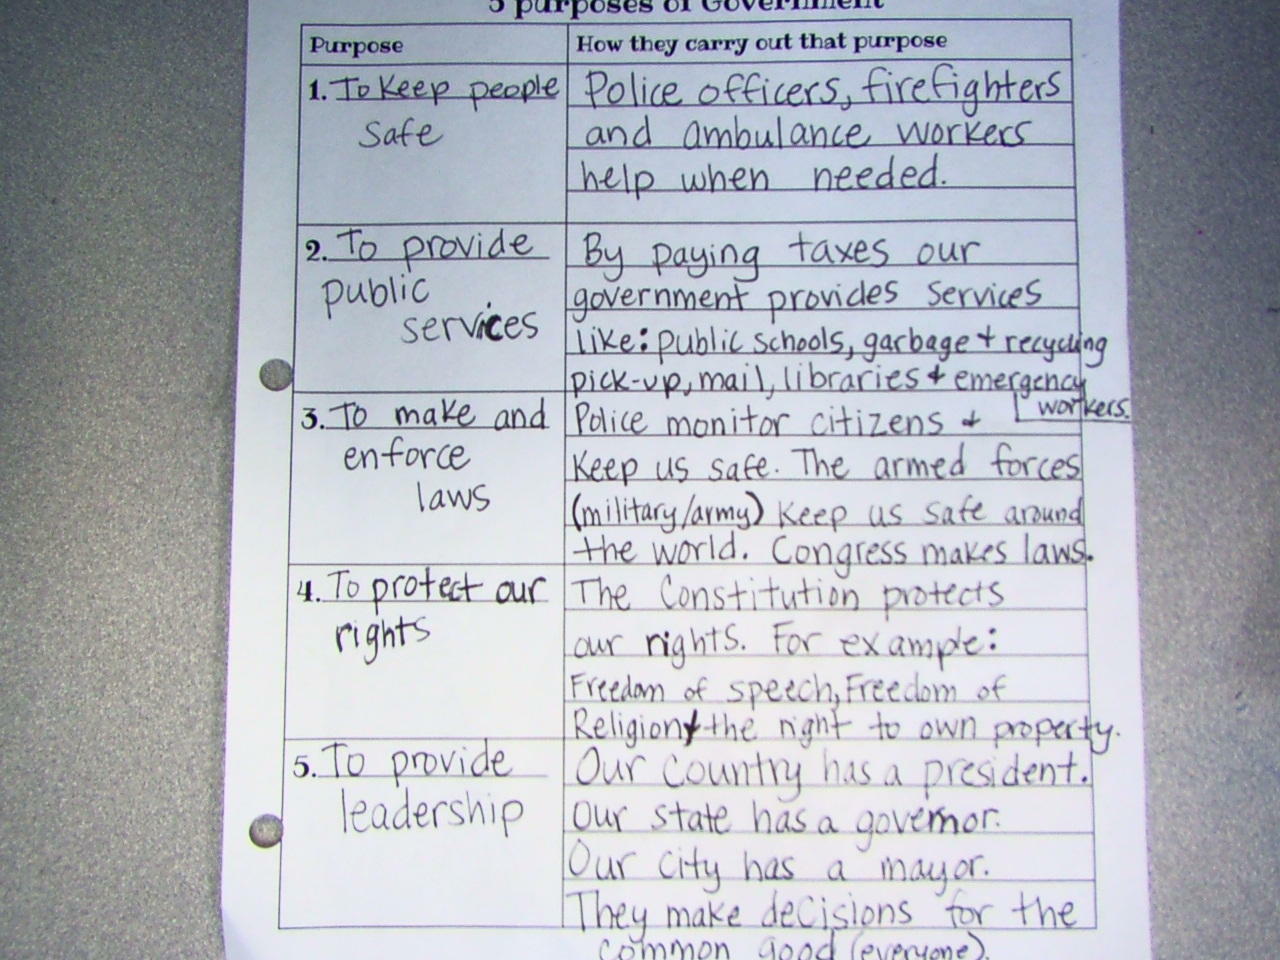 5 purposes of Government
Purpose
How they carry out that purpose
1. To keep people
safe
Police officers, firefighters
and ambulance workers
help when needed.
2. To provide
public
services
By paying taxes our
government provides services
like: public schools, garbage + recycling
pick-up, mail, libraries + emergency
workers.
3. To make and
enforce
laws
Police monitor citizens +
Keep us safe. The armed forces
(military/army) keep us safe around
the world. Congress makes laws.
4. To protect our
rights
The Constitution protects
our rights. For example:
Freedom of speech, Freedom of
Religion + the right to own property.
5. To provide
leadership
Our country has a president.
Our state has a governor.
Our city has a mayor.
They make decisions for the
common good (everyone).